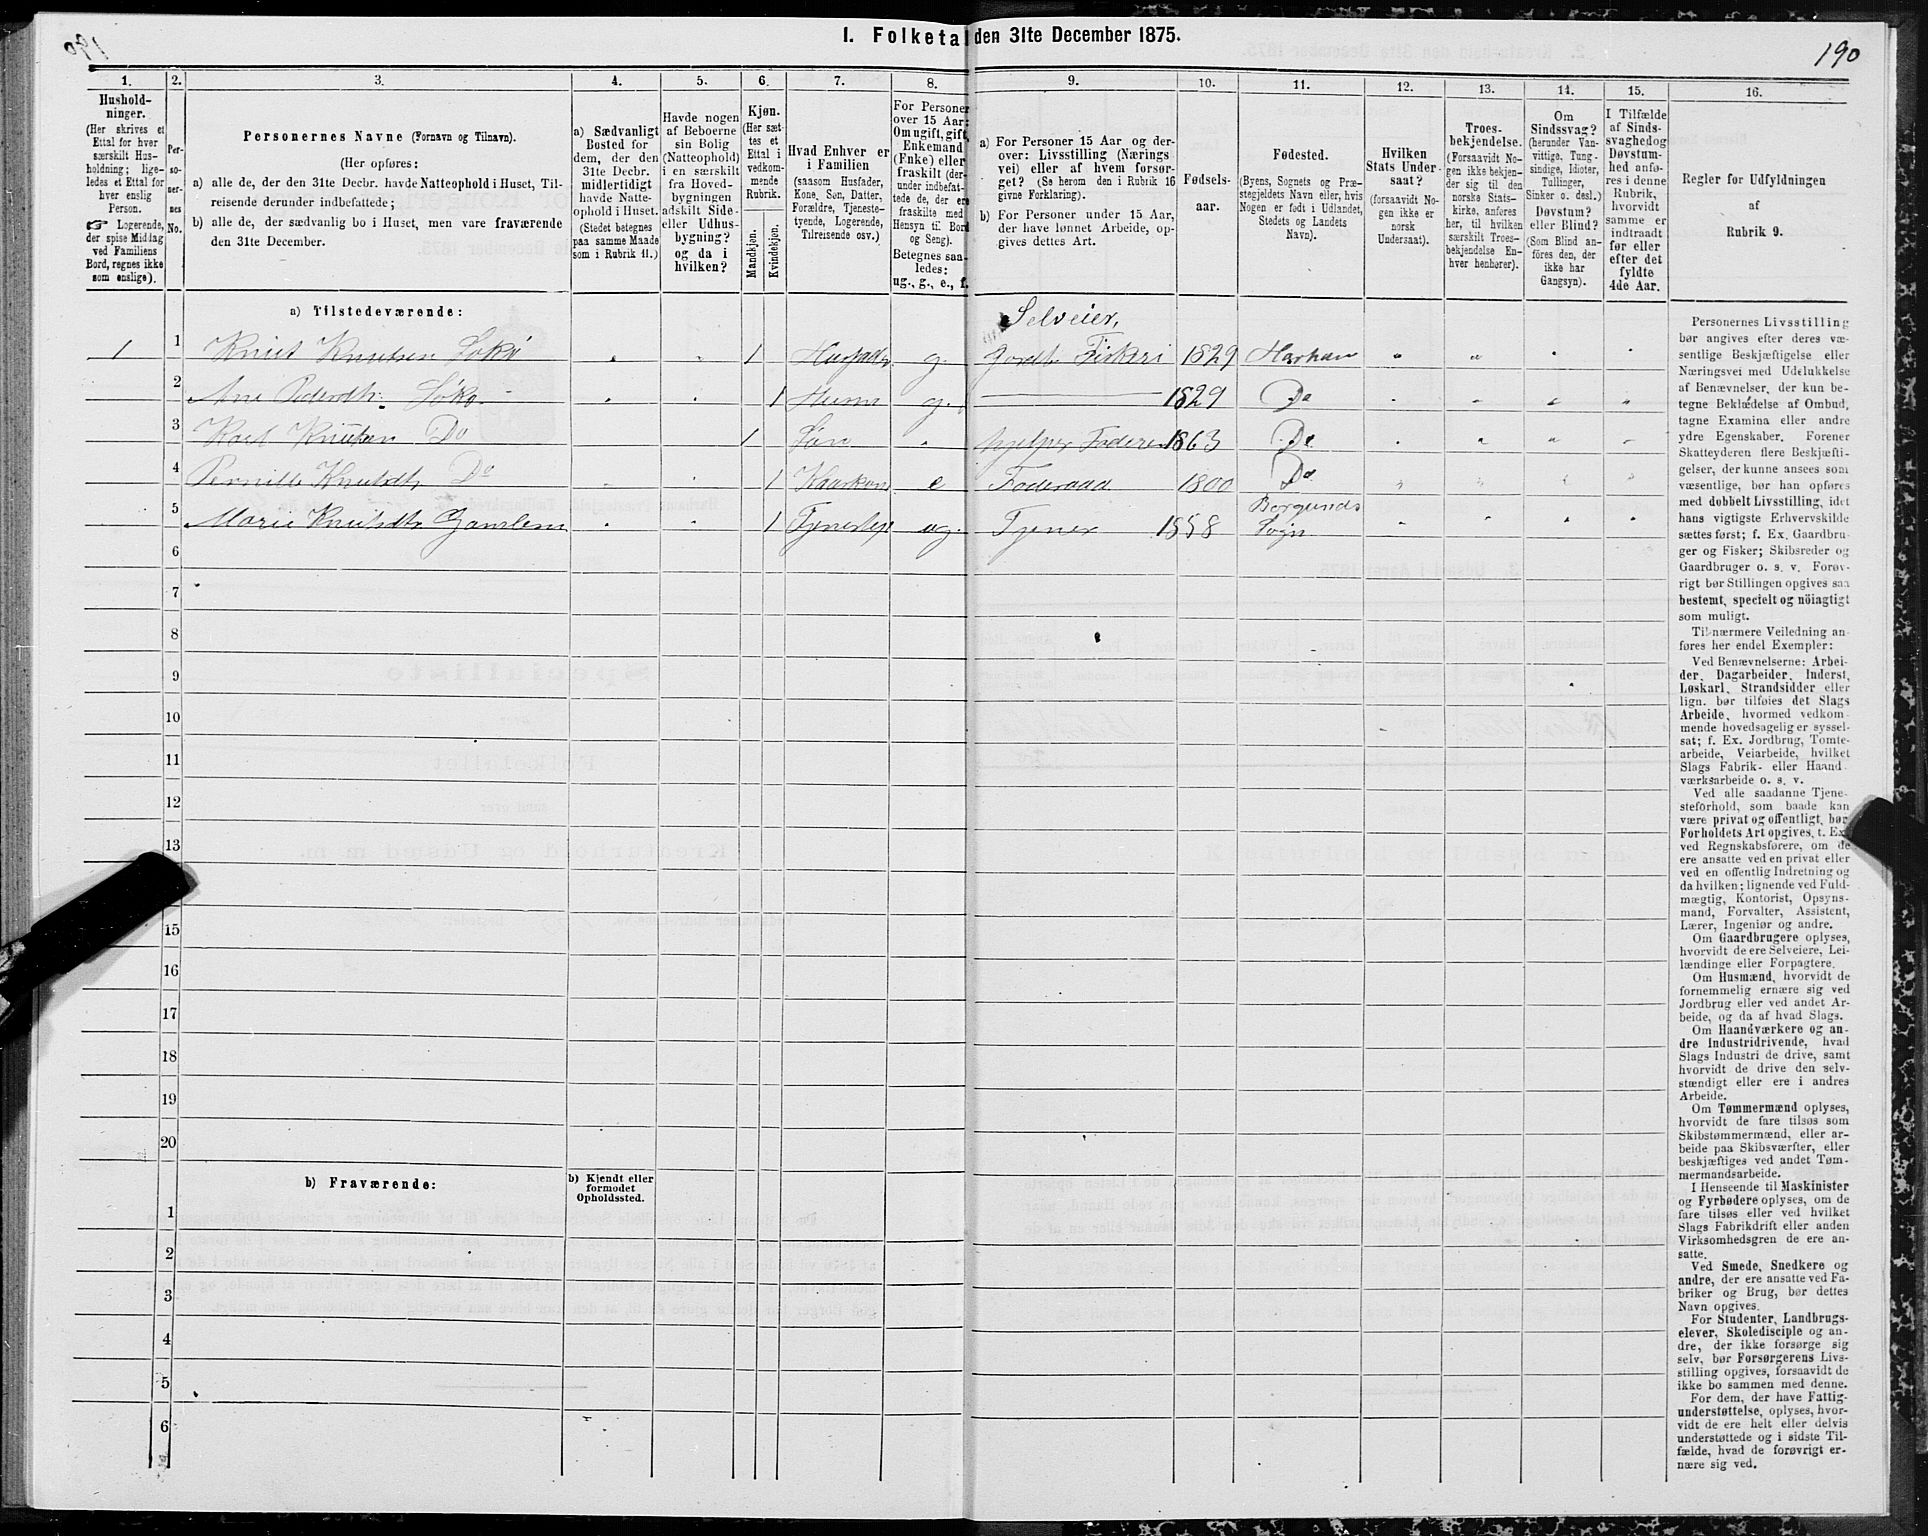 I. Folketal den 31te December 1875.
190
190
1.
2.
3.
4.
5.
6.
7.
8.
9.
10.
11.
12.
13.
14.
15.
16.
Hushold-
ninger.
(Her skrives et
Ettal for hver
særskilt Hus-
holdning; lige-
ledes et Ettal for
hver enslig
Person.
☞ Logerende,
der spise Middag
ved Familiens
Bord, regnes ikke
som enslige).
Per-
so-
ner-
nes
No.
Personernes Navne (Fornavn og Tilnavn).
(Her opføres:
a) alle de, der den 31te Decbr. havde Natteophold i Huset, Til-
reisende derunder indbefattede;
b) alle de, der sædvanlig bo i Huset, men vare fraværende
den 31te December.
a) Sædvanligt
Bosted for
dem, der den
31te Decbr.
midlertidigt
havde Natte-
ophold i Huset.
(Stedet betegnes
paa samme Maade
som i Rubrik 11.)
Havde nogen
af Beboerne
sin Bolig
(Natteophold)
i en særskilt
fra Hoved-
bygningen
adskilt Side-
eller Udhus-
bygning?
og da i
hvilken?
Kjøn.
(Her sæt-
tes et
Ettal i
vedkom-
mende
Rubrik.
Mandkjøn.
Kvindekjøn.
Hvad Enhver er
i Familien
(saasom Husfader,
Kone, Søn, Datter,
Forældre, Tjeneste-
tyende, Logerende,
Tilreisende osv.)
For Personer
over 15 Aar:
Om ugift, gift,
Enkemand
(Enke) eller
fraskilt (der-
under indbefat-
tede de, der ere
fraskilte med
Hensyn til Bord
og Seng).
Betegnes saa-
ledes:
ug., g., e., f.
a) For Personer 15 Aar og der-
over: Livsstilling (Nærings-
vei) eller af hvem forsør-
get? (Se herom den i Rubrik 16
givne Forklaring).
b) For Personer under 15 Aar,
der have lønnet Arbeide, op-
gives dettes Art.
Fødsels-
aar.
Fødested.
(Byens, Sognets og Præ-
stegjeldets Navn eller, hvis
Nogen er født i Udlandet,
Stedets og Landets
Navn).
Hvilken
Stats Under-
saat?
(forsaavidt No-
gen ikke er
norsk
Undersaat).
Troes-
bekjendelse.
(Forsaavidt No-
gen ikke bekjen-
der sig til den
norske Stats-
kirke, anføres
her, til hvilken
særskilt Troes-
bekjendelse En-
hver henhører).
Om
Sindssvag?
(herunder Van-
vittige, Tung-
sindige, Idioter,
Tullinger,
Sinker o. desl.)
Døvstum?
eller Blind?
(Som Blind an-
føres den, der
ikke har
Gangsyn).
I Tilfælde
af Sinds-
svaghed og
Døvstum-
hed anfø-
res i denne
Rubrik,
hvorvidt
samme er
indtraadt
før eller
efter det
fyldte
4de Aar.
Regler for Udfyldningen
af
Rubrik 9.
a) Tilstedeværende:
Selveier,
1 1 Knut Knutsen Søkø " " 1 Husfader g. Jordb Fiskeri 1829 Harham " " " "
2 Ane Pedersdtr. Søkø " " 1 Husm g. 1829 Do " " " "
3 Karl Knutsen Do 1 Søn " hjelper Faderen 1863 Do " " " "
4 Pernille Knutsdtr Do " " 1 e Føderaad 1800 Do " " " "
5 Marie Knutsdtr Gamlem " " 1 ug. Tjener 1858 Borgunds Sogn " " " "
6
7
8
9
10
11
12
13
15
16
17
18
19
20
b) Fraværende:
b) Kjendt eller
formodet
Opholdssted.
1
2
3
4
5
6
Personernes Livsstilling
bør angives efter deres væ-
sentlige Beskjæftigelse eller
Næringsvei med Udelukkelse
af Benævnelser, der kun be-
tegne Beklædelse af Ombud,
tagne Examina eller andre
ydre Egenskaber. Forener
Skatteyderen flere Beskjæfti-
gelser, der kunne ansees som
væsentlige, bør han opføres
med dobbelt Livsstilling, idet
hans vigtigste Erhvervskilde
sættes først; f. Ex. Gaardbru-
ger og Fisker; Skibsreder og
Gaardbruger o. s. v. Forøv-
rigt bør Stillingen opgives saa
bestemt, specielt og nöiagtigt
som muligt.
Til nærmere Veiledning an-
føres her endel Exempler:
Ved Benævnelserne: Arbei-
der, Dagarbeider, Inderst,
Løskarl, Strandsidder eller
lign. bør tilføies det Slags
Arbeide, hvormed vedkom-
mende hovedsagelig er syssel-
sat; f. Ex. Jordbrug, Tomte-
arbeide, Veiarbeide, hvilket
Slags Fabrik- eller Haand-
værksarbeide o. s. v.
Ved alle saadanne Tjene-
steforhold, som baade kan
være privat og offentligt, bør
Forholdets Art opgives, t. Ex.
ved Regnskabsførere, om de
ere ansatte ved en privat eller
ved en offentlig Indretning og
da hvilken; lignende ved Fuld-
mægtig, Kontorist, Opsyns-
mand, Forvalter, Assistent,
Lærer, Ingeniør og andre.
Om Gaardbrugere oplyses,
hvorvidt de ere Selveiere, Lei-
lændinge eller Forpagtere.
Om Husmænd, hvorvidt de
fornemmelig ernære sig ved
Jordbrug eller ved andet Ar-
beide, og da af hvad Slags.
Om Haandværkere og an-
dre Industridrivende, hvad
Slags Industri de drive, samt
hvorvidt de drive den selv-
stændigt eller ere i andres
Arbeide.
Om Tømmermænd oplyses,
hvorvidt de fare tilsøs som
Skibstømmermænd, eller ar-
beide paa Skibsværfter, eller
beskjæftiges ved andet Tøm-
mermandsarbeide.
I Henseende til Maskinister
og Fyrbødere oplyses, om de
fare tilsøs eller ved hvilket
Slags Fabrikdrift eller anden
Virksomhedsgren de ere an-
satte.
Ved Smede, Snedkere og
andre, der ere ansatte ved Fa-
briker og Brug, bør dettes
Navn opgives.
For Studenter, Landbrugs-
elever, Skoledisciple og an-
dre, der ikke forsørge sig
selv, bør Forsørgerens Livs-
stilling opgives, forsaavidt de
ikke bo sammen med denne.
For dem, der have Fattig-
understøttelse, oplyses, hvor-
vidt de ere helt eller delvis
understøttede og i sidste Til-
fælde, hvad de forøvrigt er-
nære sig ved.